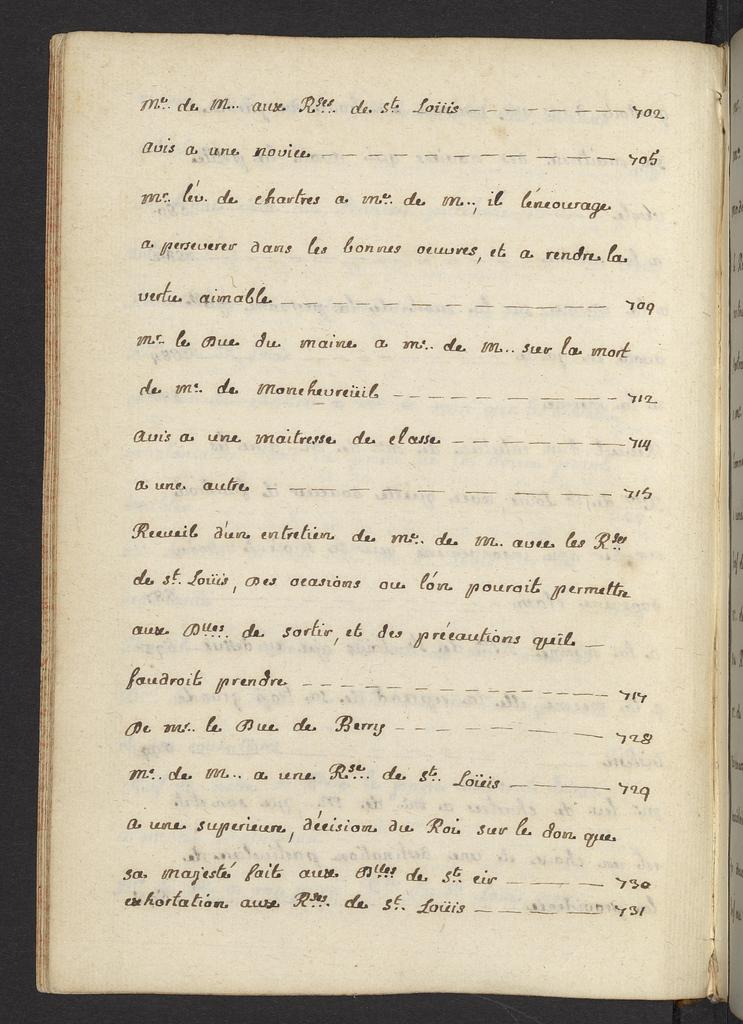 Me. de M... aux Rses. de st. Loüis — — — — — — 702
avis a une novice — — — — — — — — 705
mr. l'év. de chartres a me. de M..., il l'encourage
a perseverer dans les bonnes oeuvres, et a rendre la
vertu aimable — — — — — — — — — 709
mr. le Duc du maine a me. de M... sur la mort
de me. de Monchevreüil — — — — — — 712
avis a une maitresse de classe — — — — — 714
a une autre — — — — — — — — — 715
Recueil d'un entretien de me. de M. avec les Rses
de st. Loüis, Des ocasions ou l'on pouroit permettre
aux Dlles. de sortir, et des précautions qu'il —
faudroit prendre — — — — — — — — 717
De mr. le Duc de Berry — — — — — — 728
me. de M... a une Rse. de st. Loüis — — — — 729
a une superieure, décision du Roi sur le don que
sa majesté fait aux Dlles de st. cir — — — — 730
exhortation aux Rses. de st. Loüis — — — — — 731